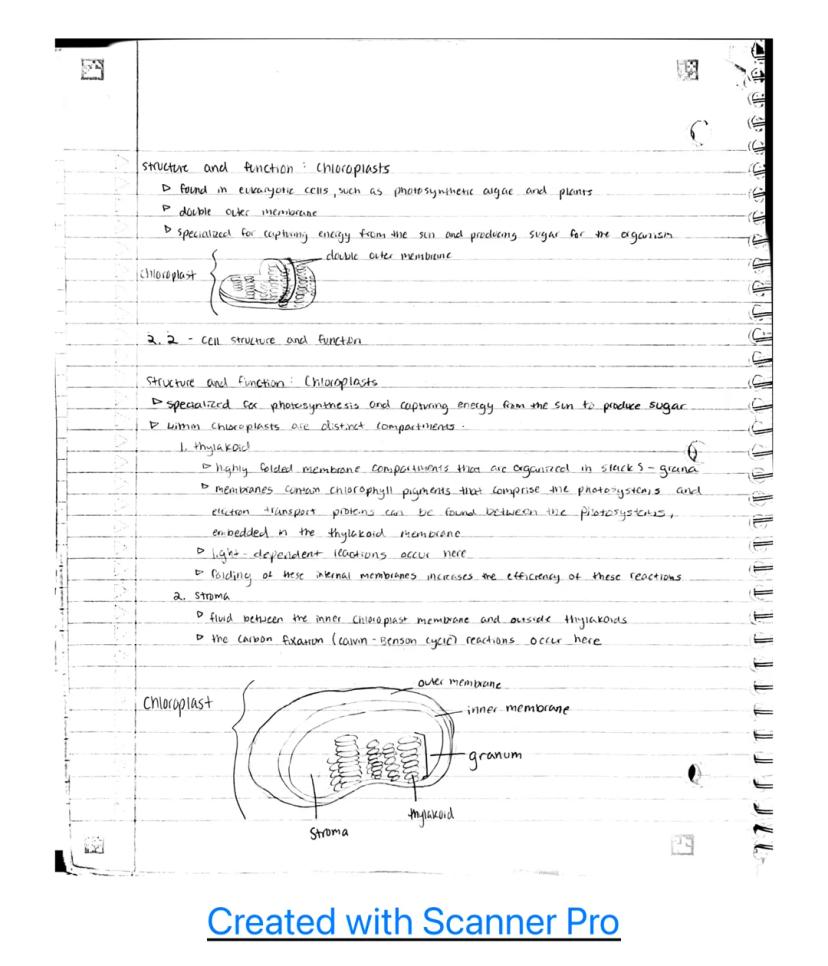 structure and function : Chloroplasts
▷ found in eukaryotic cells, such as photosynthetic algae and plants
▷ double outer membrane
▷ specialized for capturing energy from the sun and producing sugar for the organism
double outer membrane
chloroplast
2.2 - cell structure and function
structure and function : Chloroplasts
▷ specialized for photosynthesis and capturing energy from the sun to produce sugar
▷ within chloroplasts are distinct compartments.
1. thylakoid
▷ highly folded membrane compartments that are organized in stacks - grana
▷ membranes contain chlorophyll pigments that comprise the photosystems and
electron transport proteins can be found between the photosystems,
embedded in the thylakoid membrane
▷ light-dependent reactions occur here
▷ folding of these internal membranes increases the efficiency of these reactions
2. stroma
▷ fluid between the inner chloroplast membrane and outside thylakoids
▷ the carbon fixation (calvin-Benson cycle) reactions occur here
outer membrane
Chloroplast
inner membrane
granum
thylakoid
stroma
Created with Scanner Pro